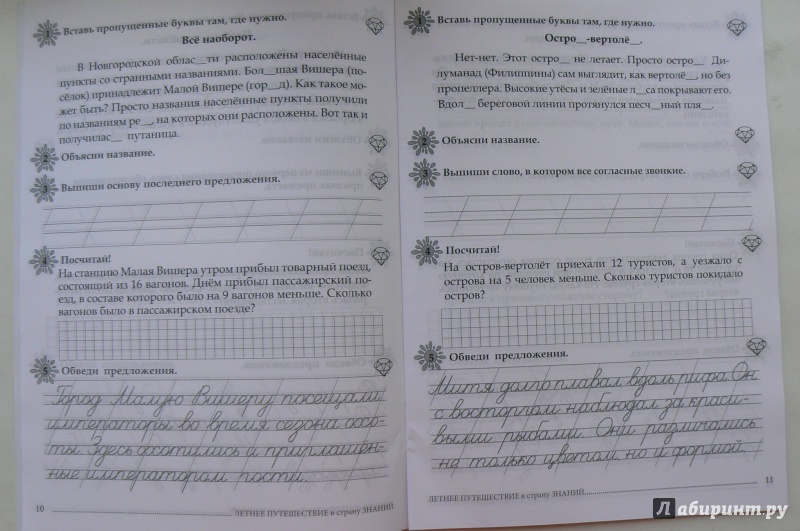 1 Вставь пропущенные буквы там, где нужно.
Всё наоборот.
В Новгородской облас__ти расположены населённые
пункты со странными названиями. Бол__шая Вишера (по-
сёлок) принадлежит Малой Вишере (гор__д). Как такое мо-
жет быть? Просто названия населённые пункты получили
по названиям ре__, на которых они расположены. Вот так и
получилас__ путаница.
2 Объясни название.
3 Выпиши основу последнего предложения.
4 Посчитай!
На станцию Малая Вишера утром прибыл товарный поезд,
состоящий из 16 вагонов. Днём прибыл пассажирский по-
езд, в составе которого было на 9 вагонов меньше. Сколько
вагонов было в пассажирском поезде?
5 Обведи предложения.
Город Малую Вишеру посещали
императоры во время сезона охо-
ты. Здесь охотились и приглашён-
ные императором гости.
10 ЛЕТНЕЕ ПУТЕШЕСТВИЕ в страну ЗНАНИЙ
1 Вставь пропущенные буквы там, где нужно.
Остро__-вертолё__.
Нет-нет. Этот остро__ не летает. Просто остро__ Ди-
луманад (Филиппины) сам выглядит, как вертолё__, но без
пропеллера. Высокие утёсы и зелёные л__са покрывают его.
Вдол__ береговой линии протянулся песч__ный пля__.
2 Объясни название.
3 Выпиши слово, в котором все согласные звонкие.
4 Посчитай!
На остров-вертолёт приехали 12 туристов, а уезжало с
острова на 5 человек меньше. Сколько туристов покидало
остров?
5 Обведи предложения.
Митя долго плавал вдоль рифа. Он
с восторгом наблюдал за краси-
выми рыбами. Они различались
не только цветом, но и формой.
ЛЕТНЕЕ ПУТЕШЕСТВИЕ в страну ЗНАНИЙ 11
Лабиринт.ру